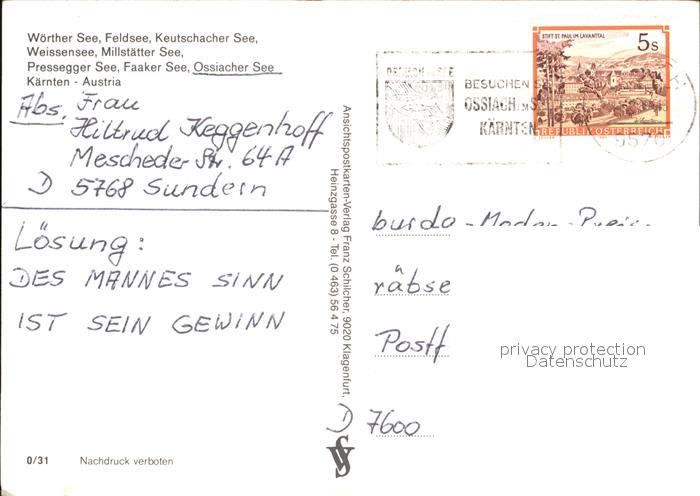 Wörther See, Feldsee, Keutschacher See,
Weissensee, Millstätter See,
Pressegger See, Faaker See, Ossiacher See
Kärnten - Austria
Abs. Frau
Hiltrud Keggenhoff
Mescheder Str. 64A
D 5768 Sundern
Lösung:
DES MANNES SINN
IST SEIN GEWINN
0/31 Nachdruck verboten
Ansichtspostkarten-Verlag Franz Schilcher, 9020 Klagenfurt,
Heinzgasse 8 - Tel. (0 463) 56 4 75
BESUCHEN
OSSIACH AM
KÄRNTEN
STIFT ST. PAUL IM LAVANTTAL
5 S
REPUBLIK ÖSTERREICH
burda - Moden - Preis-
räbse
Postf
D 7600
privacy protection
Datenschutz